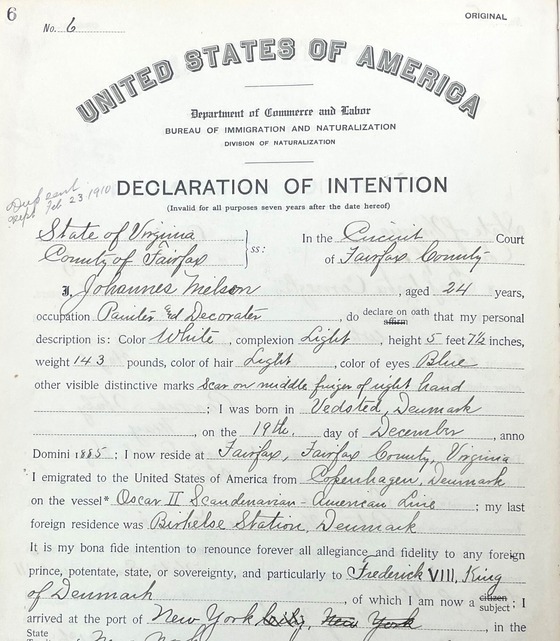 6
No. 6
ORIGINAL
UNITED STATES OF AMERICA
Department of Commerce and Labor
BUREAU OF IMMIGRATION AND NATURALIZATION
DIVISION OF NATURALIZATION
Feb 23 1910
DECLARATION OF INTENTION
(Invalid for all purposes seven years after the date hereof)
State of Virginia
County of Fairfax
ss:
In the Circuit Court
of Fairfax County
I, Johannes Nielson, aged 24 years,
occupation Painter and Decorator, do declare on oath affirm that my personal
description is: Color White, complexion Light, height 5 feet 7½ inches,
weight 143 pounds, color of hair Light, color of eyes Blue
other visible distinctive marks Scar on middle finger of right hand
; I was born in Vedsted, Denmark
, on the 19th. day of December, anno
Domini 1885; I now reside at Fairfax, Fairfax County, Virginia
I emigrated to the United States of America from Copenhagen, Denmark
on the vessel* Oscar II Scandinavian-American Line; my last
foreign residence was Birkelse Station, Denmark
It is my bona fide intention to renounce forever all allegiance and fidelity to any foreign
prince, potentate, state, or sovereignty, and particularly to Frederick VIII, King
of Denmark, of which I am now a citizen subject; I
arrived at the port of New York City, New York, in the
State